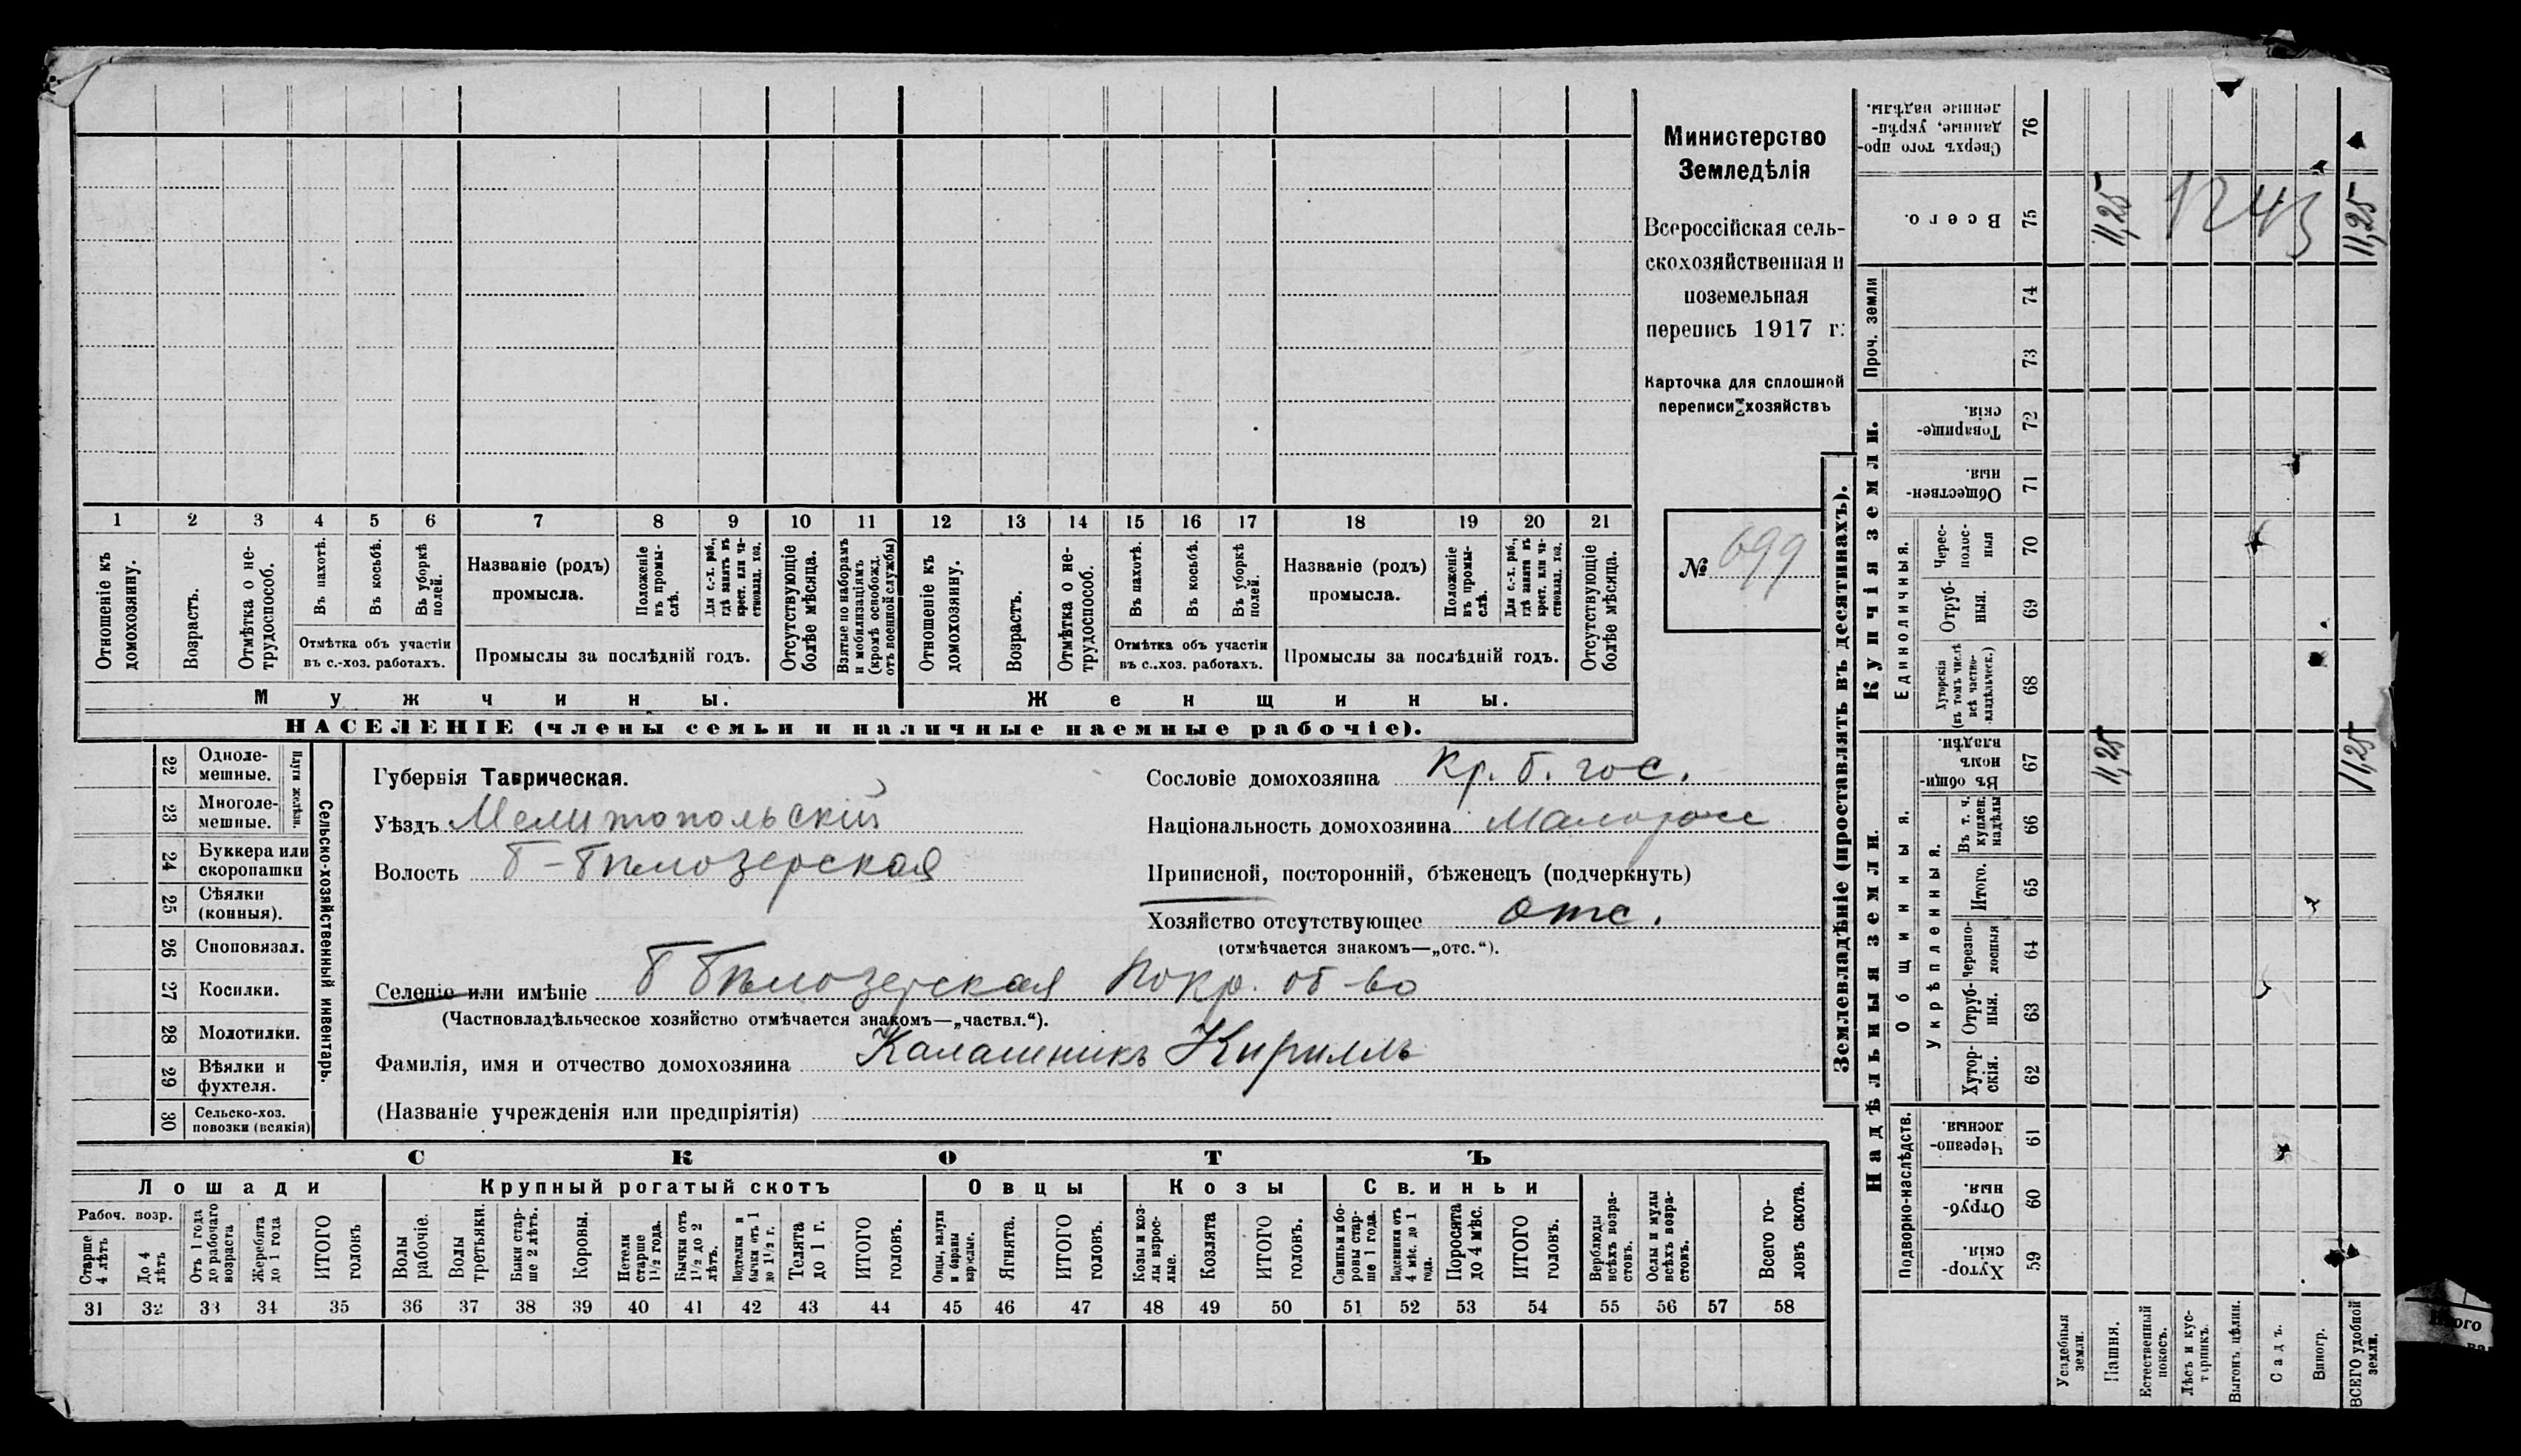 Министерство
Земледѣлія
Всероссійская сель-
скохозяйственная и
поземельная
перепись 1917 г.
Карточка для сплошной
переписи хозяйствъ
№ 699
1 2 3 4 5 6 7 8 9 10 11 12 13 14 15 16 17 18 19 20 21
Отношеніе къ домохозяину.
Возрастъ.
Отмѣтка о не-трудоспособ.
Въ пахотѣ.
Въ косьбѣ.
Въ уборкѣ полей.
Отмѣтка объ участіи
въ с.-хоз. работахъ.
Названіе (родъ)
промысла.
Положеніе въ промы-слѣ.
Для с.-х. раб., гдѣ занятъ въ крест. или ча-стновлад. хоз.
Промыслы за послѣдній годъ.
Отсутствующіе болѣе мѣсяца.
Взятые по наборамъ и мобилизаціямъ (кромѣ освобожд. отъ военной службы)
Отношеніе къ домохозяину.
Возрастъ.
Отмѣтка о не-трудоспособ.
Въ пахотѣ.
Въ косьбѣ.
Въ уборкѣ полей.
Отмѣтка объ участіи
въ с..хоз. работахъ.
Названіе (родъ)
промысла.
Положеніе въ промы-слѣ.
Для с.-х. раб., гдѣ занята въ крест. или ча-стновлад. хоз.
Промыслы за послѣдній годъ.
Отсутствующіе болѣе мѣсяца.
Мужчины.
Женщины.
НАСЕЛЕНІЕ (члены семьи и наличные наемные рабочіе).
22 Одноле-мешные.
23 Многоле-мешные.
Плуги желѣзн.
24 Буккера или скоропашки
25 Сѣялки (конныя).
26 Сноповязал.
27 Косилки.
28 Молотилки.
29 Вѣялки и фухтеля.
30 Сельско-хоз. повозки (всякія)
Сельско-хозяйственный инвентарь.
Губернія Таврическая.
Уѣздъ Мелитопольскій
Волость Б-Бѣлозерская
Сословіе домохозяина Кр. б. гос.
Національность домохозяина Малоросс
Приписной, посторонній, бѣженецъ (подчеркнуть)
Хозяйство отсутствующее отс.
(отмѣчается знакомъ—„отс.“).
Селеніе или имѣніе Б Бѣлозерская Покр. об-во
(Частновладѣльческое хозяйство отмѣчается знакомъ—„частвл.“).
Фамилія, имя и отчество домохозяина Калашникъ Кириллъ
(Названіе учрежденія или предпріятія)
СКОТЪ
Лошади
Крупный рогатый скотъ
Овцы
Козы
Свиньи
Рабоч. возр.
Старше 4 лѣтъ
До 4 лѣтъ
Отъ 1 года до рабочаго возраста
Жеребята до 1 года
ИТОГО головъ
Волы рабочіе.
Волы третьяки.
Быки стар-ше 2 лѣтъ.
Коровы.
Нетели старше 1½ года.
Бычки отъ 1½ до 2 лѣтъ.
Подтелки и бычки отъ 1 до 1½ г.
Телята до 1 г.
ИТОГО головъ.
Овцы, валухи и бараны взрослые.
Ягнята.
ИТОГО головъ.
Козы и коз-лы взрос-лые.
Козлята
ИТОГО головъ.
Свиньи и бо-ровы стар-ше 1 года.
Подсвинки отъ 4 мѣс. до 1 года.
Поросята до 4 мѣс.
ИТОГО головъ.
Верблюды всѣхъ возра-стовъ.
Ослы и мулы всѣхъ возра-стовъ.
Всего го-ловъ скота.
31 32 33 34 35 36 37 38 39 40 41 42 43 44 45 46 47 48 49 50 51 52 53 54 55 56 57 58
Землевладѣніе (проставлять въ десятинахъ).
Надѣльныя земли.
Купчія земли.
Проч. земли
Подворно-наслѣдств.
Общинныя.
Укрѣпленныя.
Единоличныя.
Хутор-скія. 59
Отруб-ныя. 60
Черезпо-лосныя. 61
Хутор-скія. 62
Отруб-ныя. 63
Черезпо-лосныя 64
Итого. 65
Въ т. ч. куплен. надѣлы 66
Въ общи-номъ владѣн. 67
Хуторскія (въ томъ числѣ всѣ частно-владѣльческ.) 68
Отруб-ныя. 69
Черес-полос-ныя 70
Обществен-ныя. 71
Товарище-скія. 72
73
74
Всего. 75
Сверхъ того про-данные, укрѣп-ленные надѣлы. 76
Усадебныя земли.
Пашня.
Естественный покосъ.
Лѣсъ и кус-тарникъ.
Выгонъ цѣлин.
Садъ.
Виногр.
ВСЕГО удобной земли.
11,25
11,25
11,25
11,25
1243